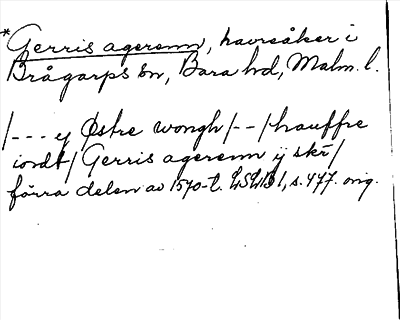 *Gerris agerenn, havreåker i
Brågarps sn, Bara hd, Malm. l.
/--- ij Østre wongh/--/hauffre
iordt/Gerris agerenn ij skr/
förra delen av 1570-t. LSLB 1, s. 477. orig.